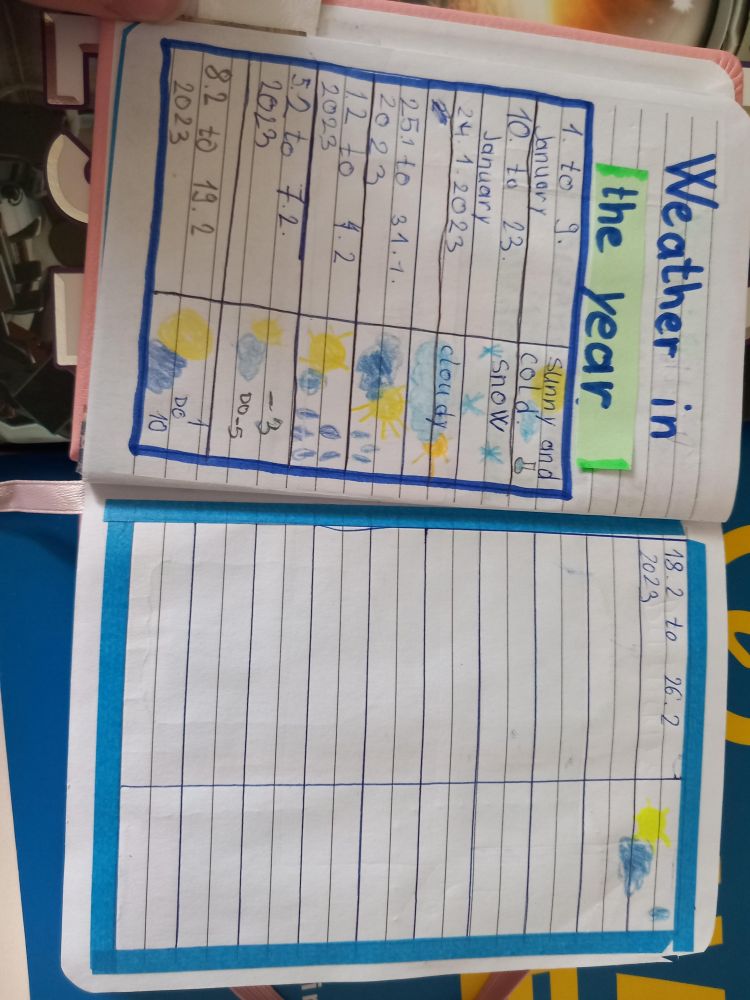 Weather in
the year
1. to 9.
January
sunny and
cold
10. to 23.
January
snow
24.1.2023
cloudy
25.1 to 31.1.
2023
1.2 to 4.2
2023
5.2 to 7.2.
2023
-3
DO -5
8.2 to 19.2
2023
1
DO
10
18.2 to 26.2
2023